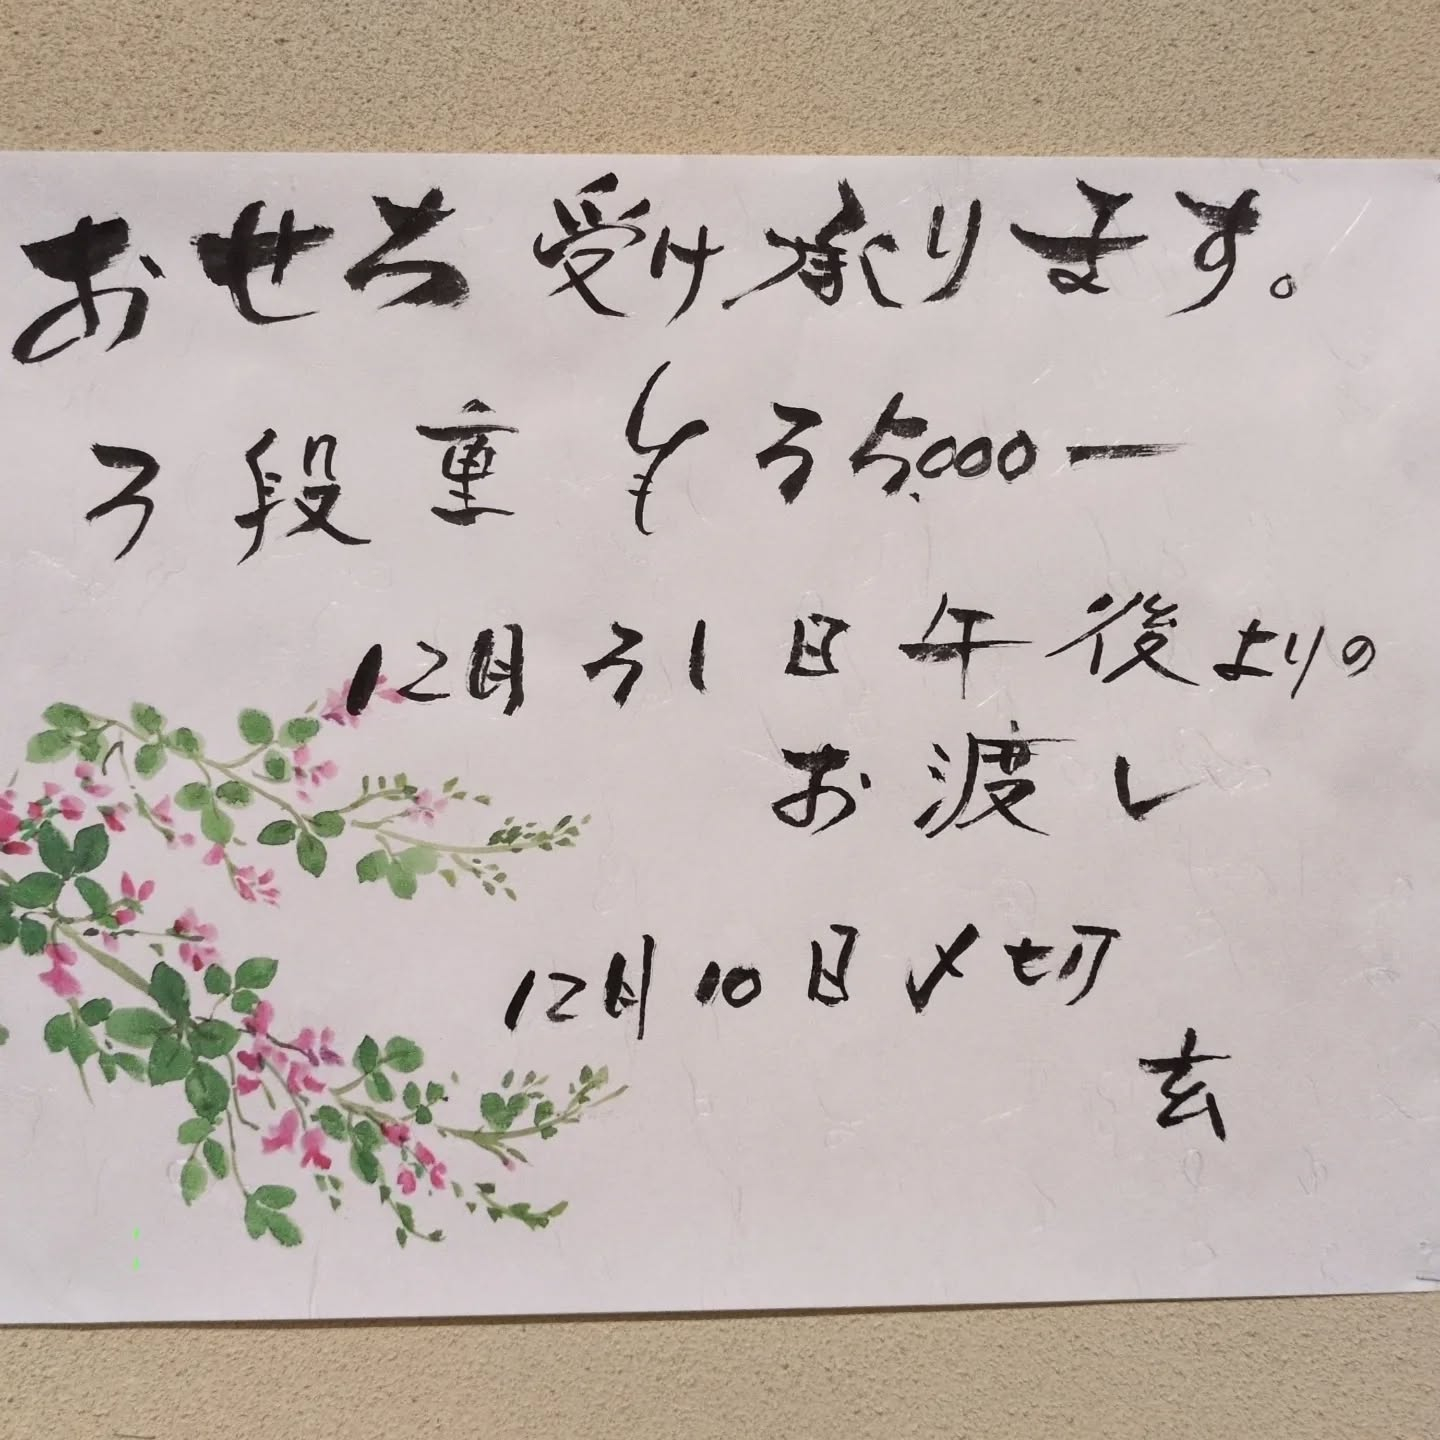 おせち受け承ります。
3段重 ¥35,000ー
12月31日午後よりの
お渡し
12月10日〆切
玄